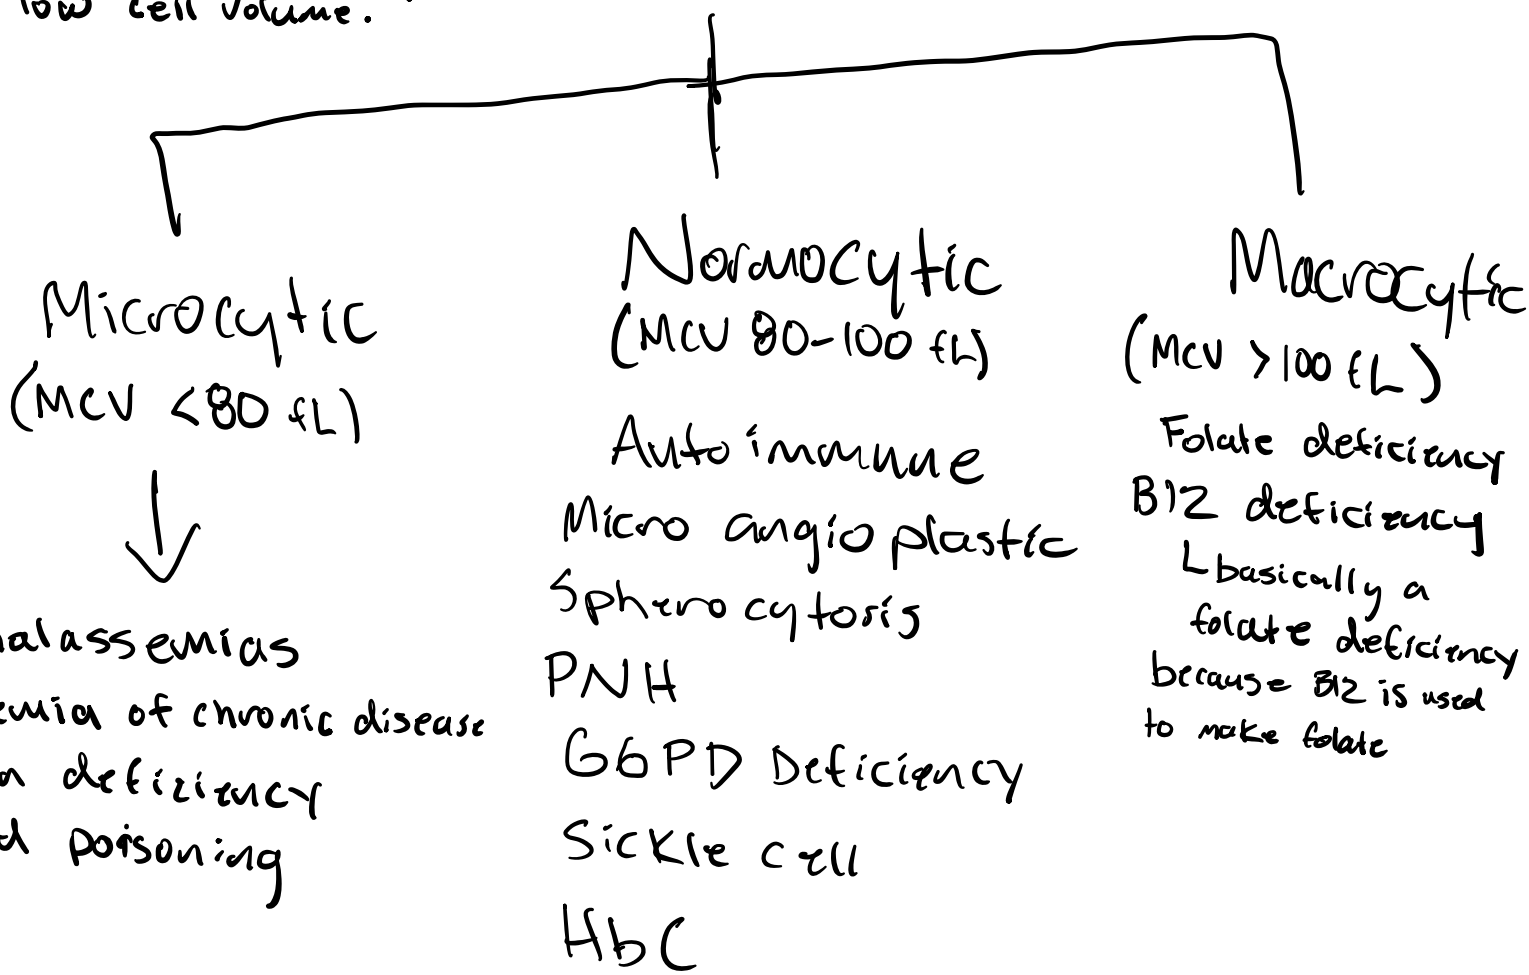 low cell volume.
Microcytic
(MCV <80 fL)
alassemias
emia of chronic disease
n deficiency
d poisoning
Normocytic
(MCV 80-100 fL)
Autoimmune
Micro angioplastic
Spherocytosis
PNH
G6PD Deficiency
Sickle cell
HbC
Macrocytic
(MCV >100 fL)
Folate deficiency
B12 deficiency
L basically a
folate deficiency
because B12 is used
to make folate